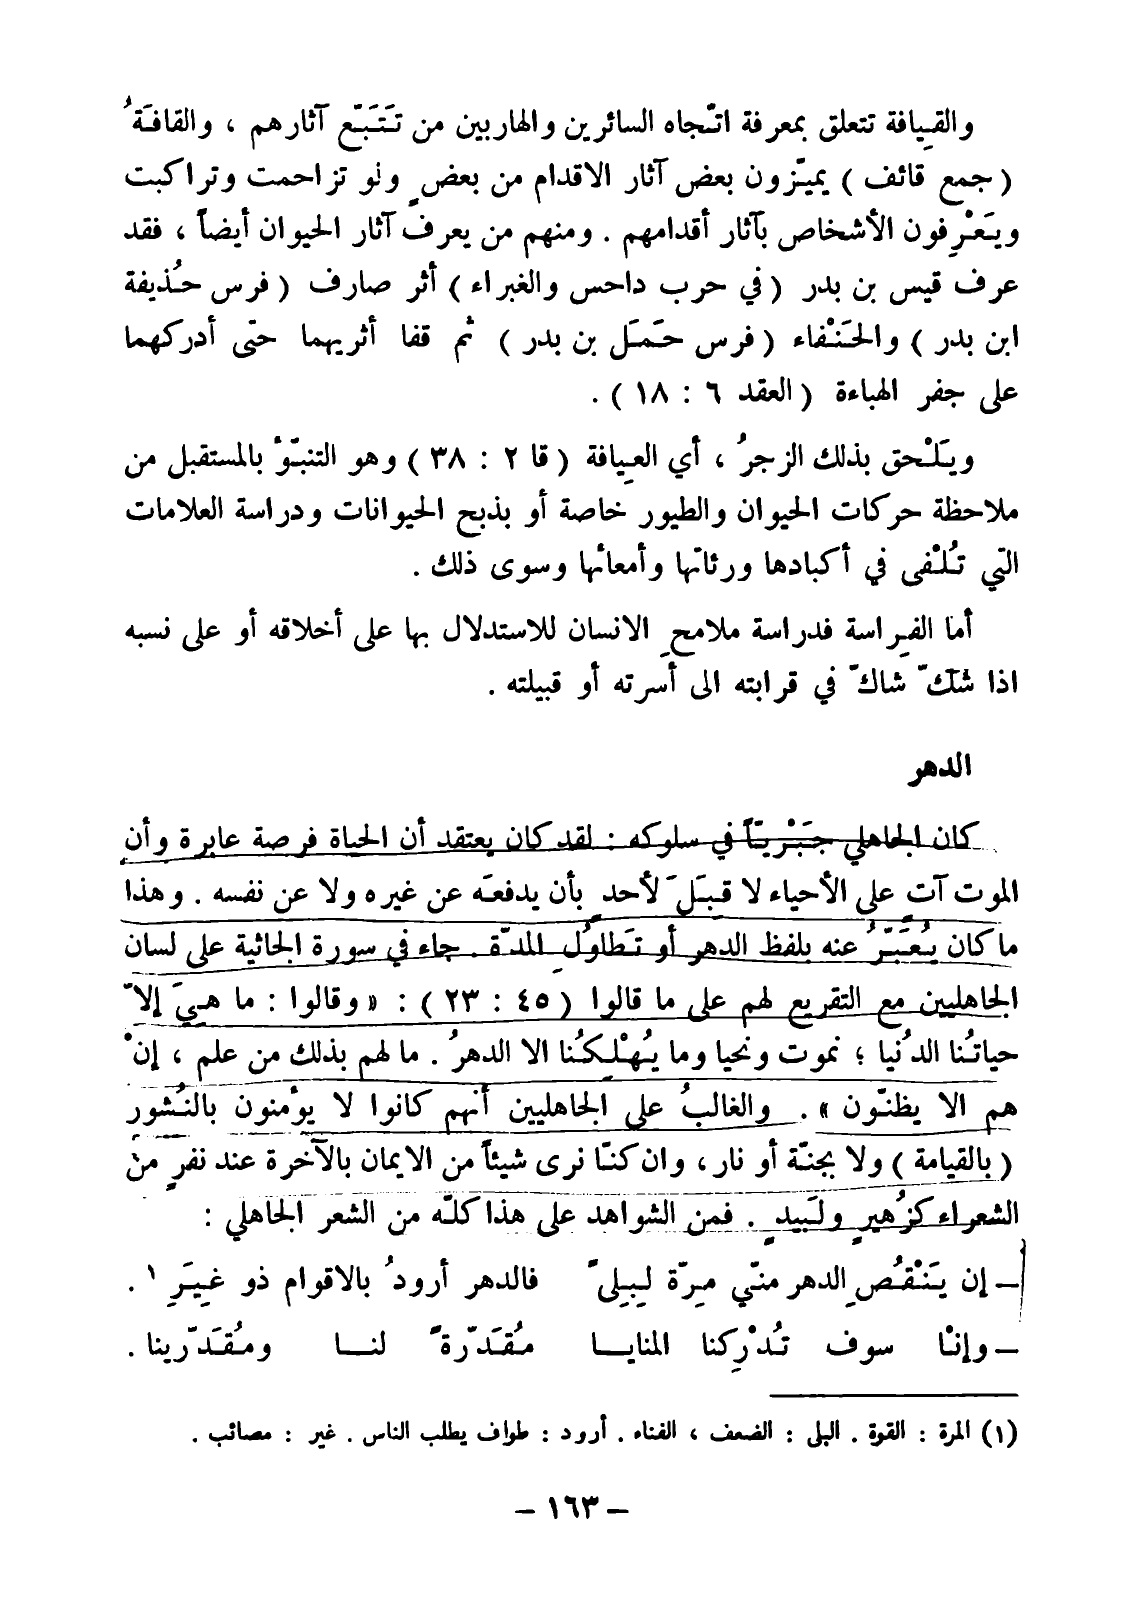 والقِيافة تتعلق بمعرفة اتّجاه السائرين والهاربين من تَتَبّع آثارهم ، والقافَةُ
( جمع قائف ) يميّزون بعض آثار الاقدام من بعضٍ ولو تزاحمت وتراكبت
ويَعْرِفون الأشخاص بآثار أقدامهم . ومنهم من يعرف آثار الحيوان أيضاً ، فقد
عرف قيس بن بدر ( في حرب داحس والغبراء ) أثر صارف ( فرس حُذيفة
ابن بدر ) والحَنْفاء ( فرس حَمَل بن بدر ) ثم قفا أثريهما حتّى أدركهما
على جفر الهباءة ( العقد ٦ : ١٨ ) .
ويَلْحق بذلك الزجرُ ، أي العِيافة ( قا ٢ : ٣٨ ) وهو التنبّؤ بالمستقبل من
ملاحظة حركات الحيوان والطيور خاصة أو بذبح الحيوانات ودراسة العلامات
التي تُلْفى في أكبادها ورئاتها وأمعائها وسوى ذلك .
أما الفِراسة فدراسة ملامحِ الانسان للاستدلال بها على أخلاقه أو على نسبه
اذا شكّ شاكّ في قرابته الى أسرته أو قبيلته .
الدهر
كان الجاهلي جَبْريّاً في سلوكه : لقد كان يعتقد أن الحياة فرصة عابرة وأن
الموت آت على الأحياء لا قِبَلَ لأحدٍ بأن يدفعَه عن غيره ولا عن نفسه . وهذا
ما كان يُعَبّرُ عنه بلفظ الدهر أو تَطاوُلِ المدّة . جاء في سورة الجاثية على لسان
الجاهليين مع التقريع لهم على ما قالوا ( ٤٥ : ٢٣ ) : « وقالوا : ما هيَ إلاّ
حياتُنا الدُنيا ؛ نموت ونحيا وما يُهْلِكُنا الا الدهرُ . ما لهم بذلك من علم ، إنْ
هم الا يظنّون » . والغالبُ على الجاهليين أنهم كانوا لا يؤمنون بالنُشور
( بالقيامة ) ولا بجنّة أو نار ، وان كنّا نرى شيئاً من الايمان بالآخرة عند نفرٍ من
الشعراء كزُهيرٍ ولَبيدٍ . فمن الشواهد على هذا كلّه من الشعر الجاهلي :
– إن يَنْقُصِ الدهر منّي مِرّة لِبِلىً فالدهر أرودُ بالاقوام ذو غِيَرِ ١ .
– وإنّا سوف تُدْرِكنا المنايا مُقَدّرةً لنا ومُقَدّرينا .
(١) المرة : القوة . البلى : الضعف ، الفناء . أرود : طواف يطلب الناس . غير : مصائب .
– ١٦٣ –